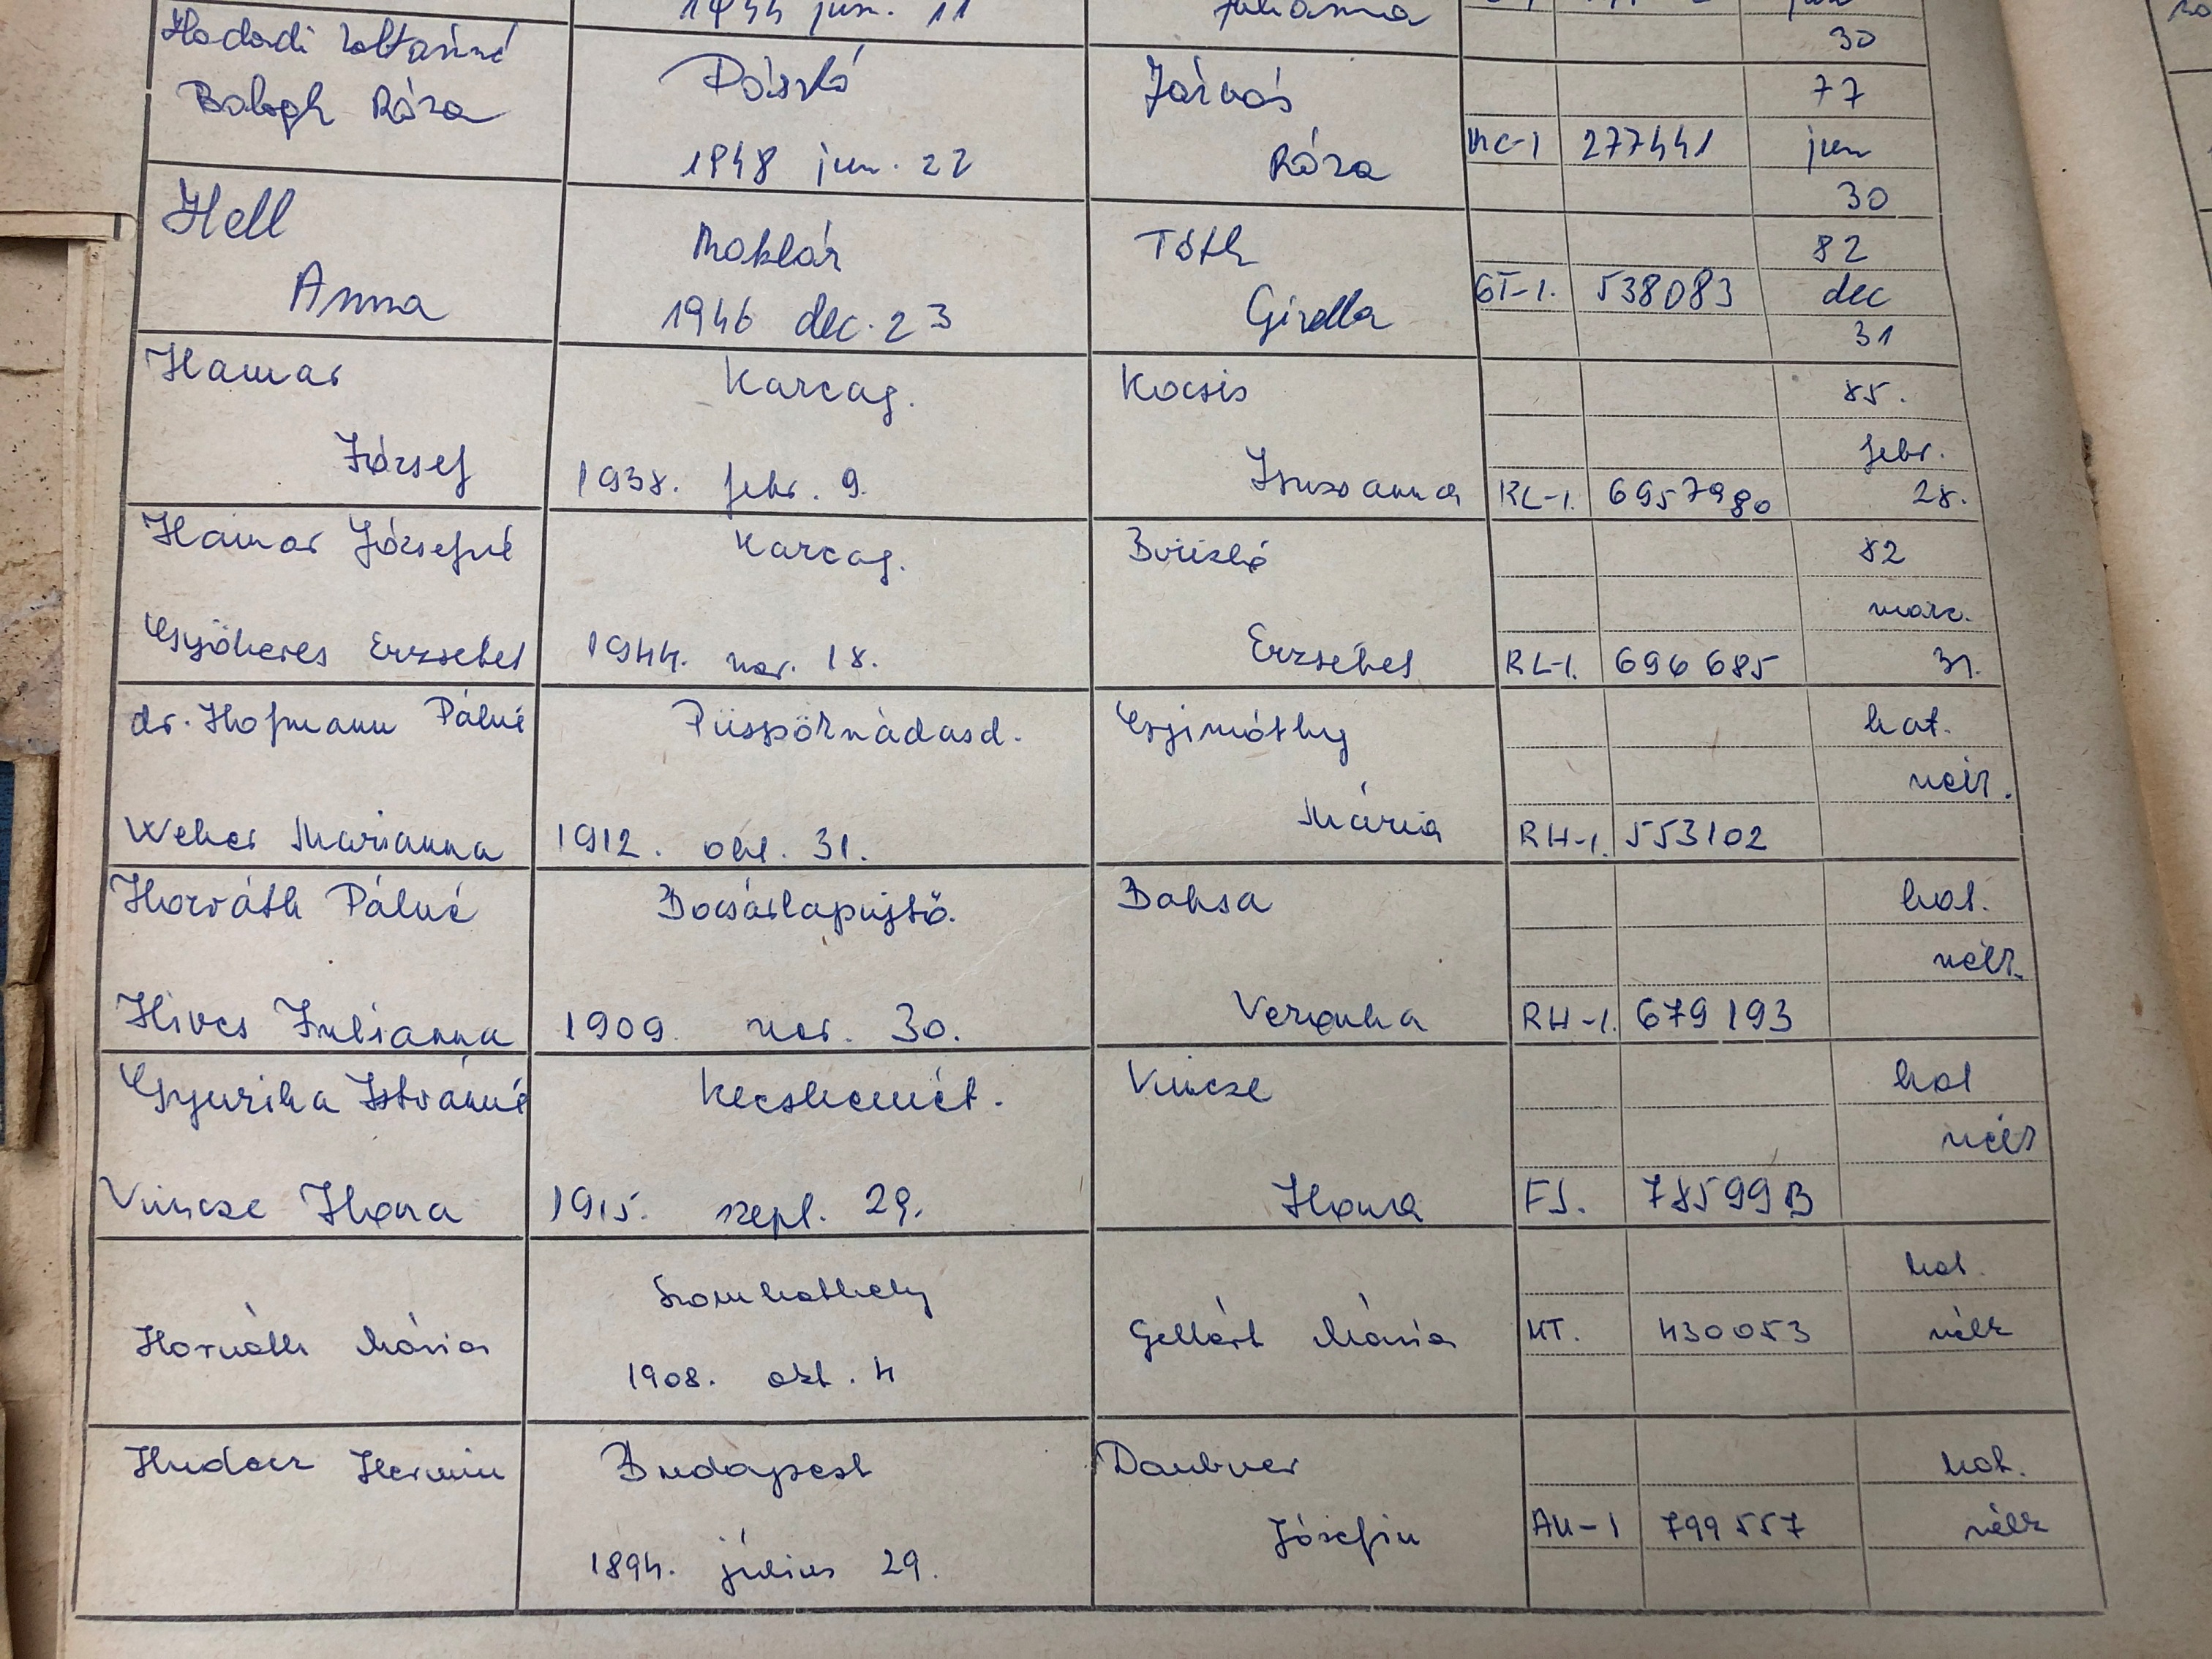 1944 jun. 11 Julianna
Hadadi Zoltánné 30
Balogh Róza Pásztó Járvás 77
1948 jun. 22 Róza 277441 jun
30
Hell Maklár Tóth 82
Anna 1946 dec. 23 Gizella GT-1. 538083 dec
31
Hamar Karcag. Kocsis 85.
febr.
József 1938. febr. 9. Zsuzsanna RL-1. 6957980 28.
Hamar Józsefné Karcag. 82
marc.
Gyökeres Erzsébet 1944. nov. 18. Erzsébet RL-1. 696685 31.
dr. Hofmann Pálné Püspöknádasd. Gyimóthy hat.
nélk.
Weber Marianna 1912. okt. 31. Mária RH-1. 553102
Horváth Pálné Bocsárlapujtő. Baksa hat.
nélk.
Hives Julianna 1909 nov. 30. Veronka RH-1. 679193
Gyurika Istvánné Kecskemét. Vincze hat
nélk
Vincze Ilona 1915. szept. 29. Ilona FJ. 785993
Szombathely hat.
Horváth Mária Gellért Mária MT. 430053 nélk
1908. okt. 4
Hudecz Hermin Budapest Daubner hat.
Józefin AU-1 799557 nélk
1894. július 29.